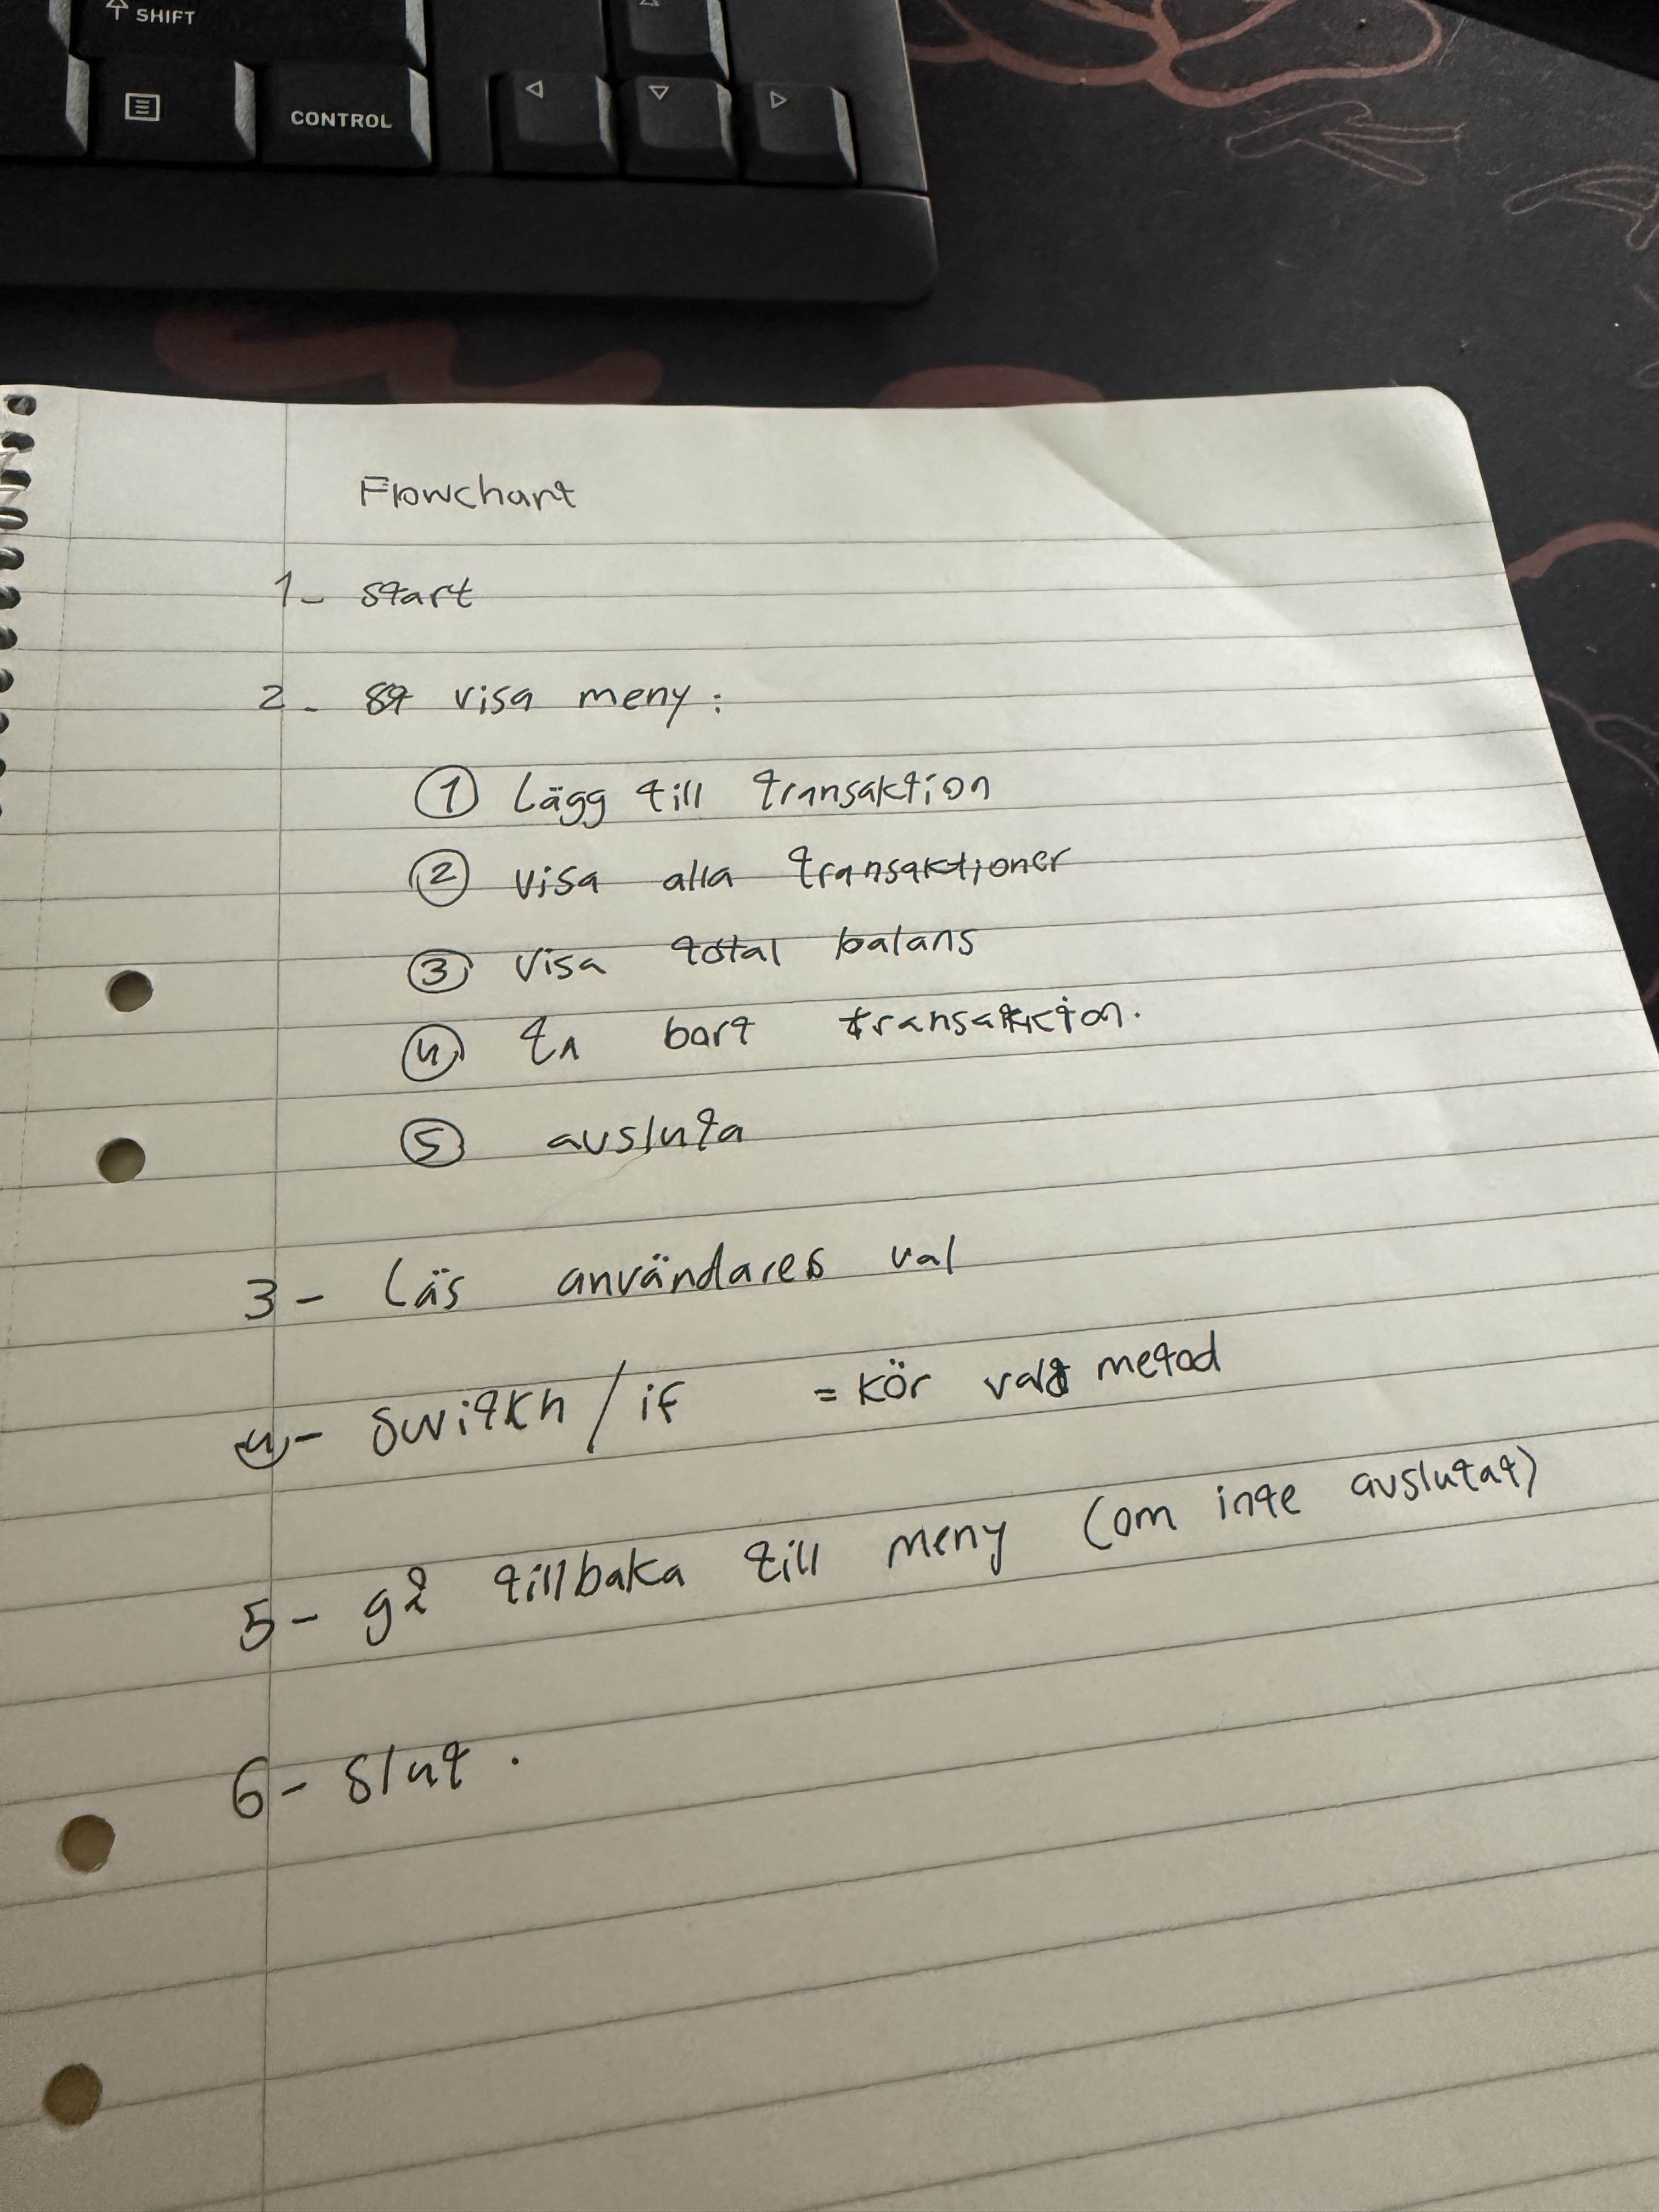 SHIFT
CONTROL
Flowchart
1- start
2- visa meny:
① Lägg till transaktion
② visa alla transaktioner
③ Visa total balans
④ ta bort transaktion.
⑤ avsluta
3- Läs användares val
4- switkh / if = kör vald metod
5- gå tillbaka till meny (om inte avslutat)
6- slut.